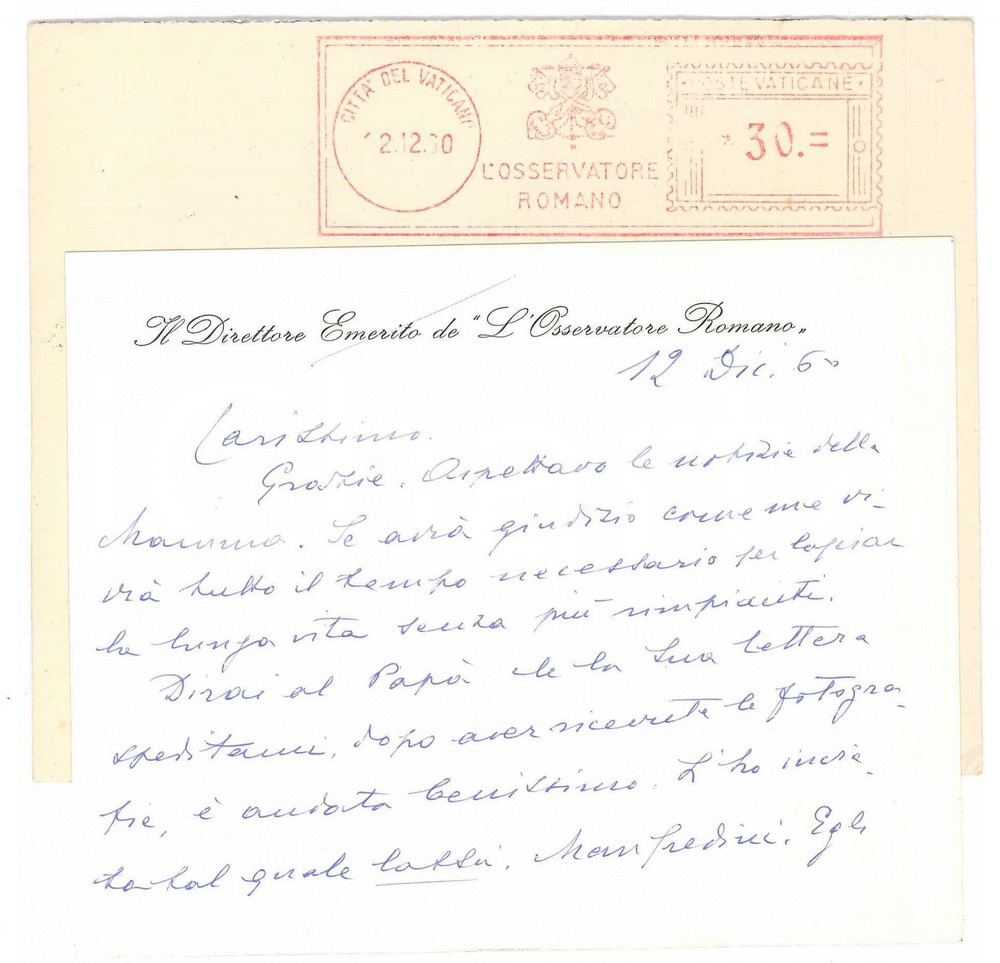 CITTA' DEL VATICANO
12.12.60
L'OSSERVATORE
ROMANO
POSTE VATICANE
* 30.=
Il Direttore Emerito de "L'Osservatore Romano„
12 Dic. 60
Carissimo.
Grazie. Aspettavo le notizie della
Mamma. Se avrà giudizio come me vi-
vrà tutto il tempo necessario per
la lunga vita senza più rimpianti.
Dirai al Papà che la Sua lettera
speditami, dopo aver ricevuta le fotogra-
fie, è andata benissimo. L'ho invia-
ta tal quale lassù. Manfredini. Egli